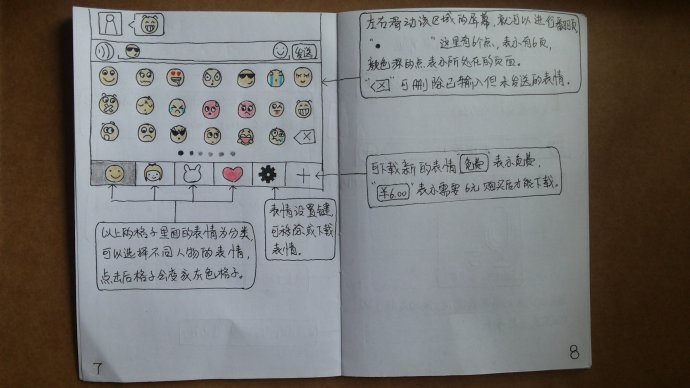 发送
以上的格子里面的表情为分类,
可以选择不同人物的表情,
点击后格子会变成灰色格子。
表情设置键,
可移除或下载
表情。
7
左右滑动该区域的屏幕,就可以进行翻页
"●        "这里有6个点,表示有6页,
颜色深的点表示所处在的页面。
"⌫"可删除已输入但未发送的表情。
可下载新的表情"免费"表示免费,
"¥6.00"表示需要6元购买后才能下载。
8